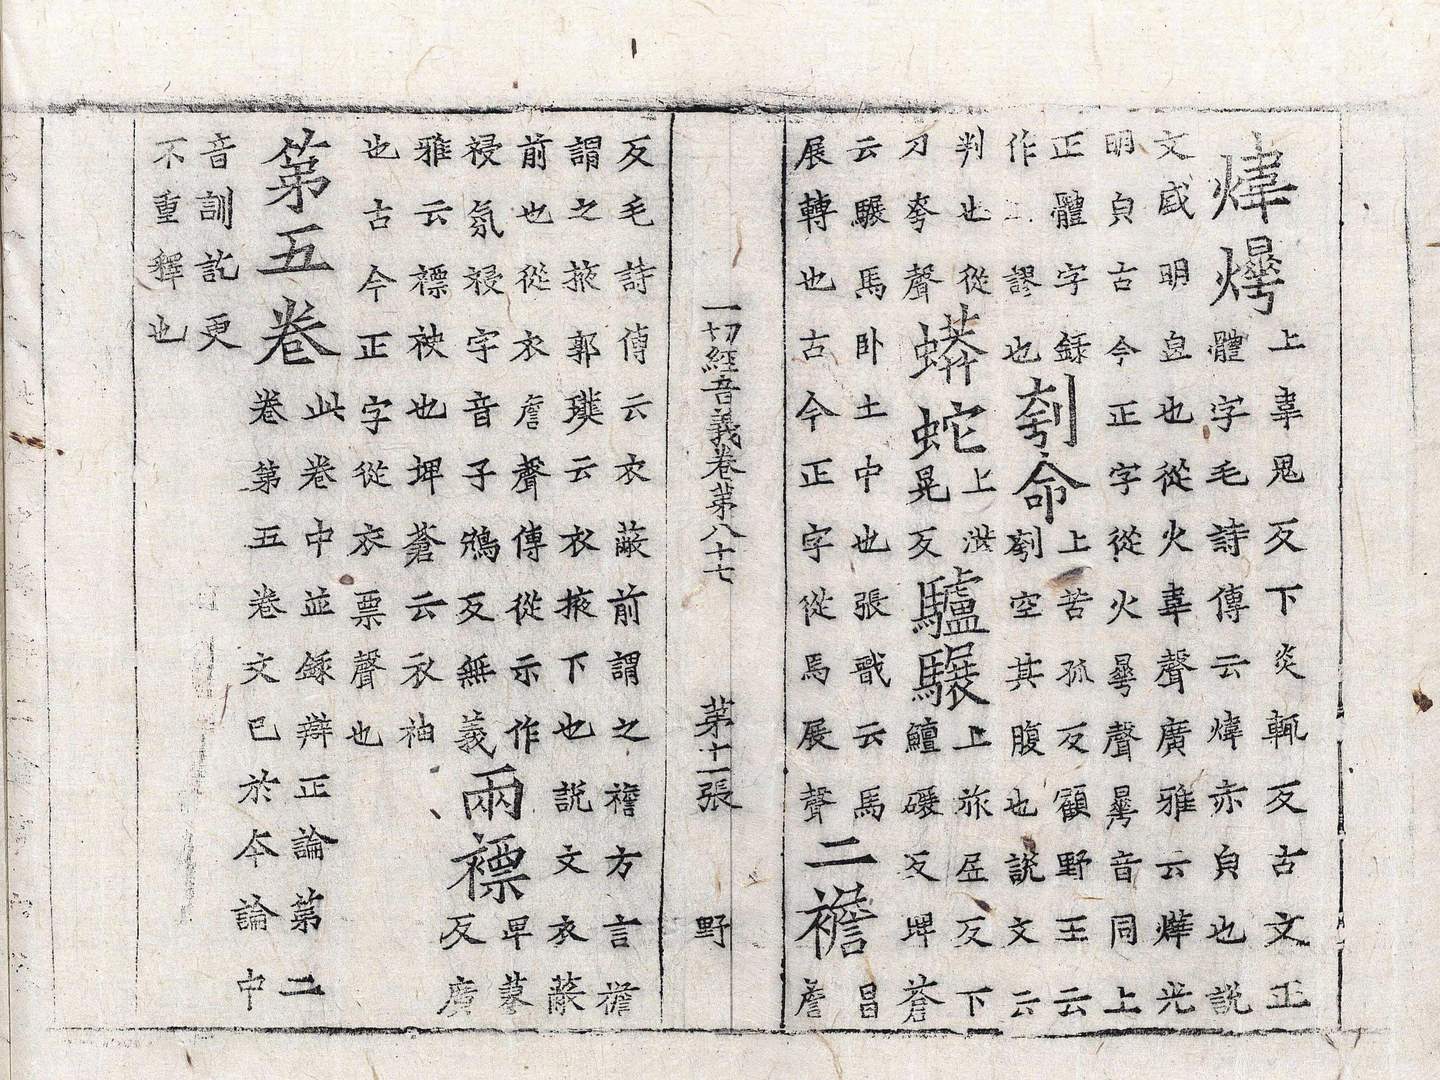 煒爗上韋鬼反下炎輒反古文正
體字毛詩傳云煒赤皃也說
文盛明皃也從火韋聲廣雅云燁光
明皃古今正字從火曅聲曅音同上
正體字錄
作謬也
刳命上苦孤反顧野王云
刳空其腹也說文云
判也從
刀夸聲
蟒蛇上茫
晃反
驢𩥇上旅居反下
鱣碾反埤蒼
云𩥇馬卧土中也張戩云馬
展轉也古今正字從馬展聲
二襜昌
詹
一切經音義卷第八十七 第十一張 野
反毛詩傳云衣蔽前謂之襜方言襜
謂之掖郭璞云衣掖下也說文衣蔽
前也從衣詹聲傳從示作
祲氛祲字音子鴆反無義
兩褾卑摹
反廣
雅云褾袂也埤蒼云衣袖
也古今正字從衣票聲也
第五卷此卷中並錄辯正論第二
卷第五卷文已於本論中
音訓訖更
不重釋也